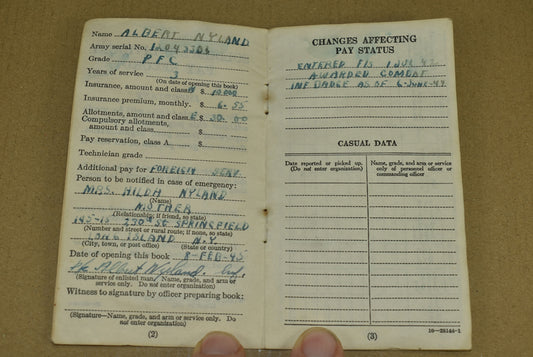 Name ALBERT NYLAND
Army serial No.
Grade PFC
Years of service 3
(On date of opening this book)
Insurance, amount and class $ 10.000
Insurance premium, monthly. $ 6.55
Allotments, amount and class E $ 50.00
Compulsory allotments,
amount and class. $
Pay reservation, class A. $
Technician grade
Additional pay for FOREIGN SERV.
Person to be notified in case of emergency:
MRS. HILDA NYLAND
(Name)
MOTHER
(Relationship; if friend, so state)
145-15 230th ST SPRINGFIELD
(Number and street or rural route; if none, so state)
LONG ISLAND N.Y.
(City, town, or post office) (State or country)
Date of opening this book 8-FEB-45
Pfc Albert Nyland. Inf.
(Signature of enlisted man) Name, grade, and arm or
service only. Do not enter organization)
Witness to signature by officer preparing book:
(Signature—Name, grade, and arm or service only. Do
not enter organization)
(2)
CHANGES AFFECTING
PAY STATUS
ENTERED FS 1 JUL 42
AWARDED COMBAT
INF BADGE AS OF 6-JUNE-44
CASUAL DATA
Date reported or picked up.
(Do not enter organization)
Name, grade, and arm or service
only of personnel officer or
commanding officer
(3)
16-28144-1